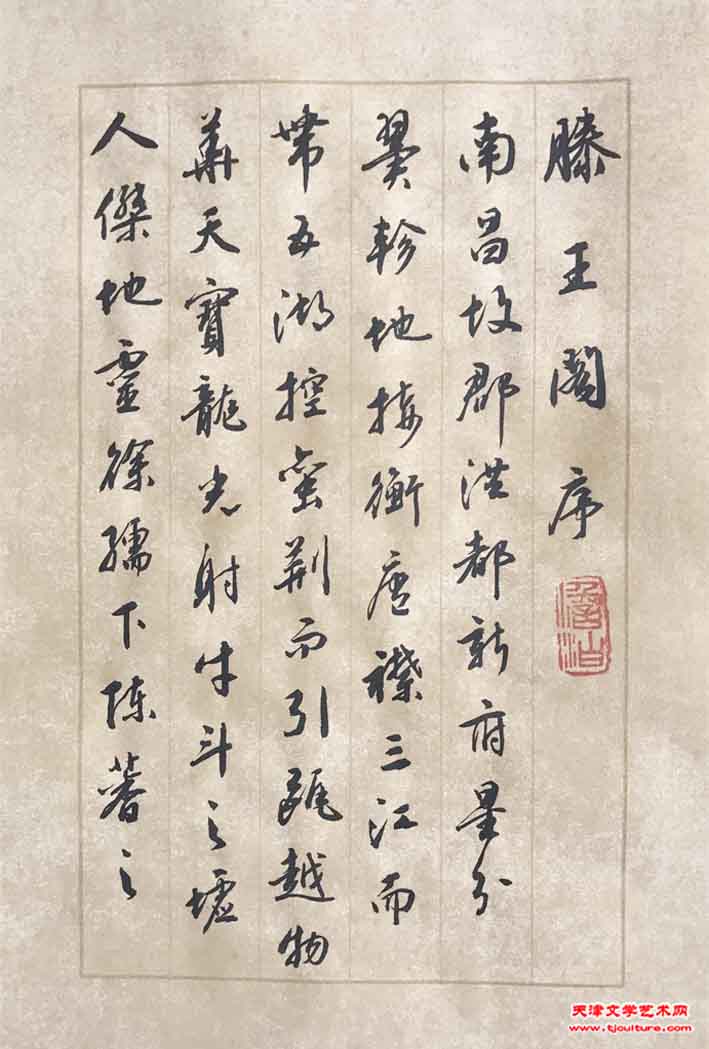 滕王閣序
南昌故郡洪都新府星分
翼軫地接衡廬襟三江而
帶五湖控蠻荊而引甌越物
華天寶龍光射牛斗之墟
人傑地靈徐孺下陳蕃之
天津文学艺术网
www.tjculture.com